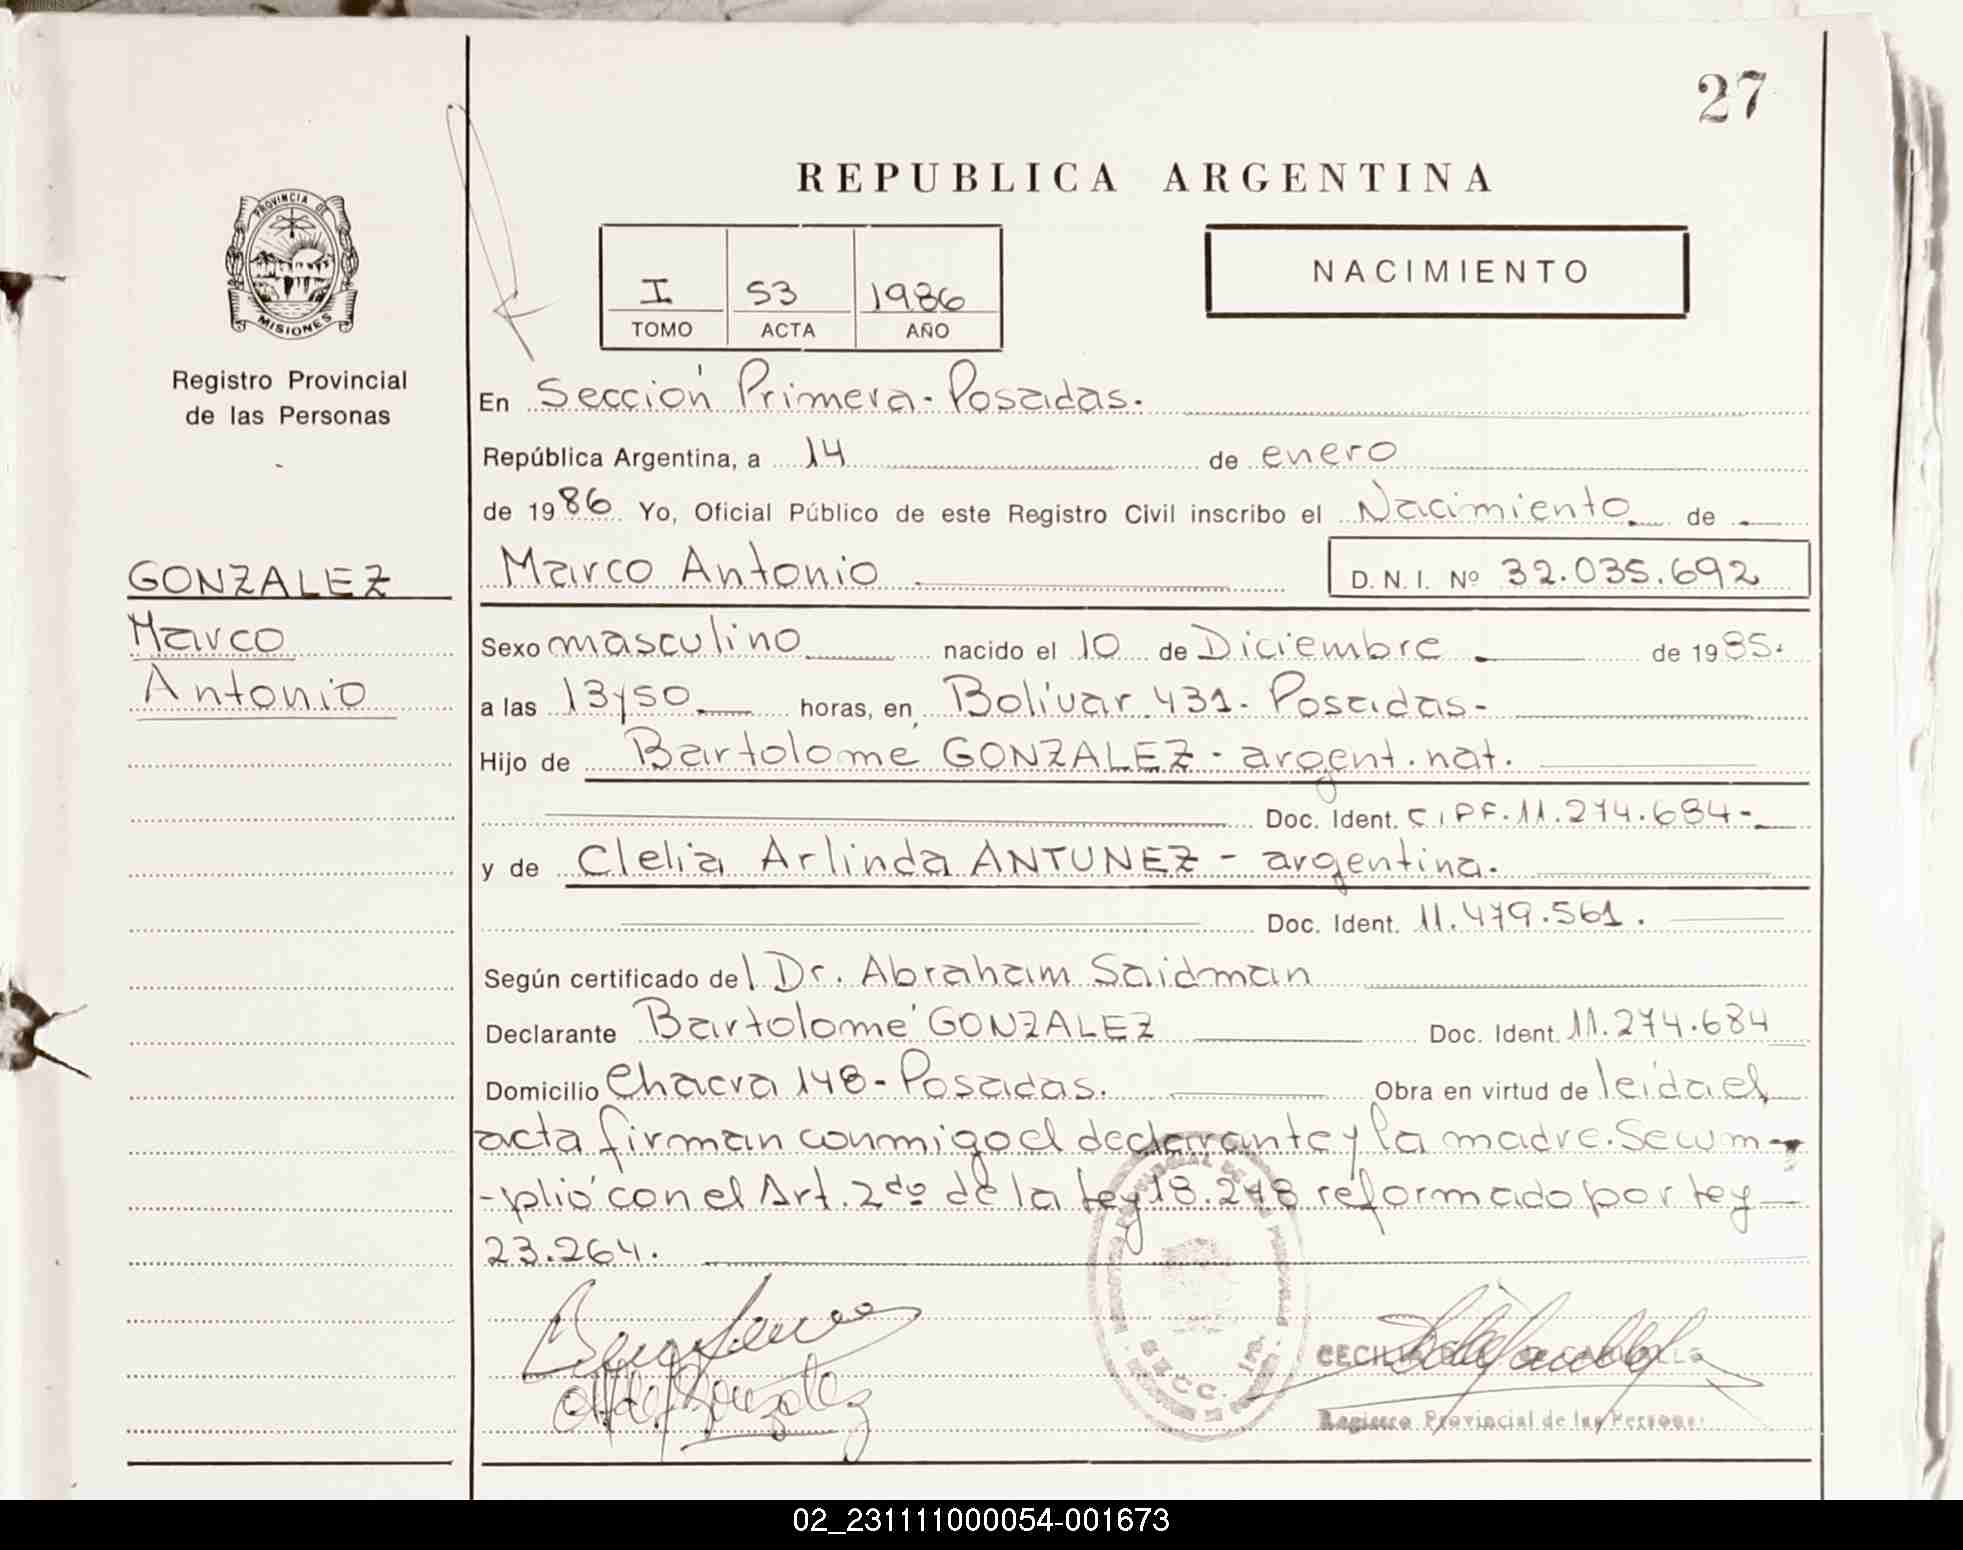 27
REPUBLICA ARGENTINA
PROVINCIA DE
MISIONES
Registro Provincial
de las Personas
I 53 1986
TOMO ACTA AÑO
NACIMIENTO
En Sección Primera - Posadas.
República Argentina, a 14 de enero
de 1986 Yo, Oficial Público de este Registro Civil inscribo el Nacimiento de
GONZALEZ
Marco
Antonio
Marco Antonio D.N.I. Nº 32.035.692
Sexo masculino nacido el 10 de Diciembre de 1985.
a las 13y50 horas, en Bolívar 431 - Posadas -
Hijo de Bartolomé GONZALEZ - argent. nat.
Doc. Ident. C.I.PF. 11.274.684 -
y de Clelia Arlinda ANTUNEZ - argentina.
Doc. Ident. 11.479.561.
Según certificado del Dr. Abraham Saidman
Declarante Bartolomé GONZALEZ Doc. Ident. 11.274.684
Domicilio Chacra 148 - Posadas. Obra en virtud de leída el
acta firman conmigo el declarante y la madre. Se cum-
-plió con el Art. 2do de la Ley 18.248 reformado por Ley
23.264.
SECC. 1ra.
CECILIA
Registro Provincial de las Personas
02_231111000054-001673